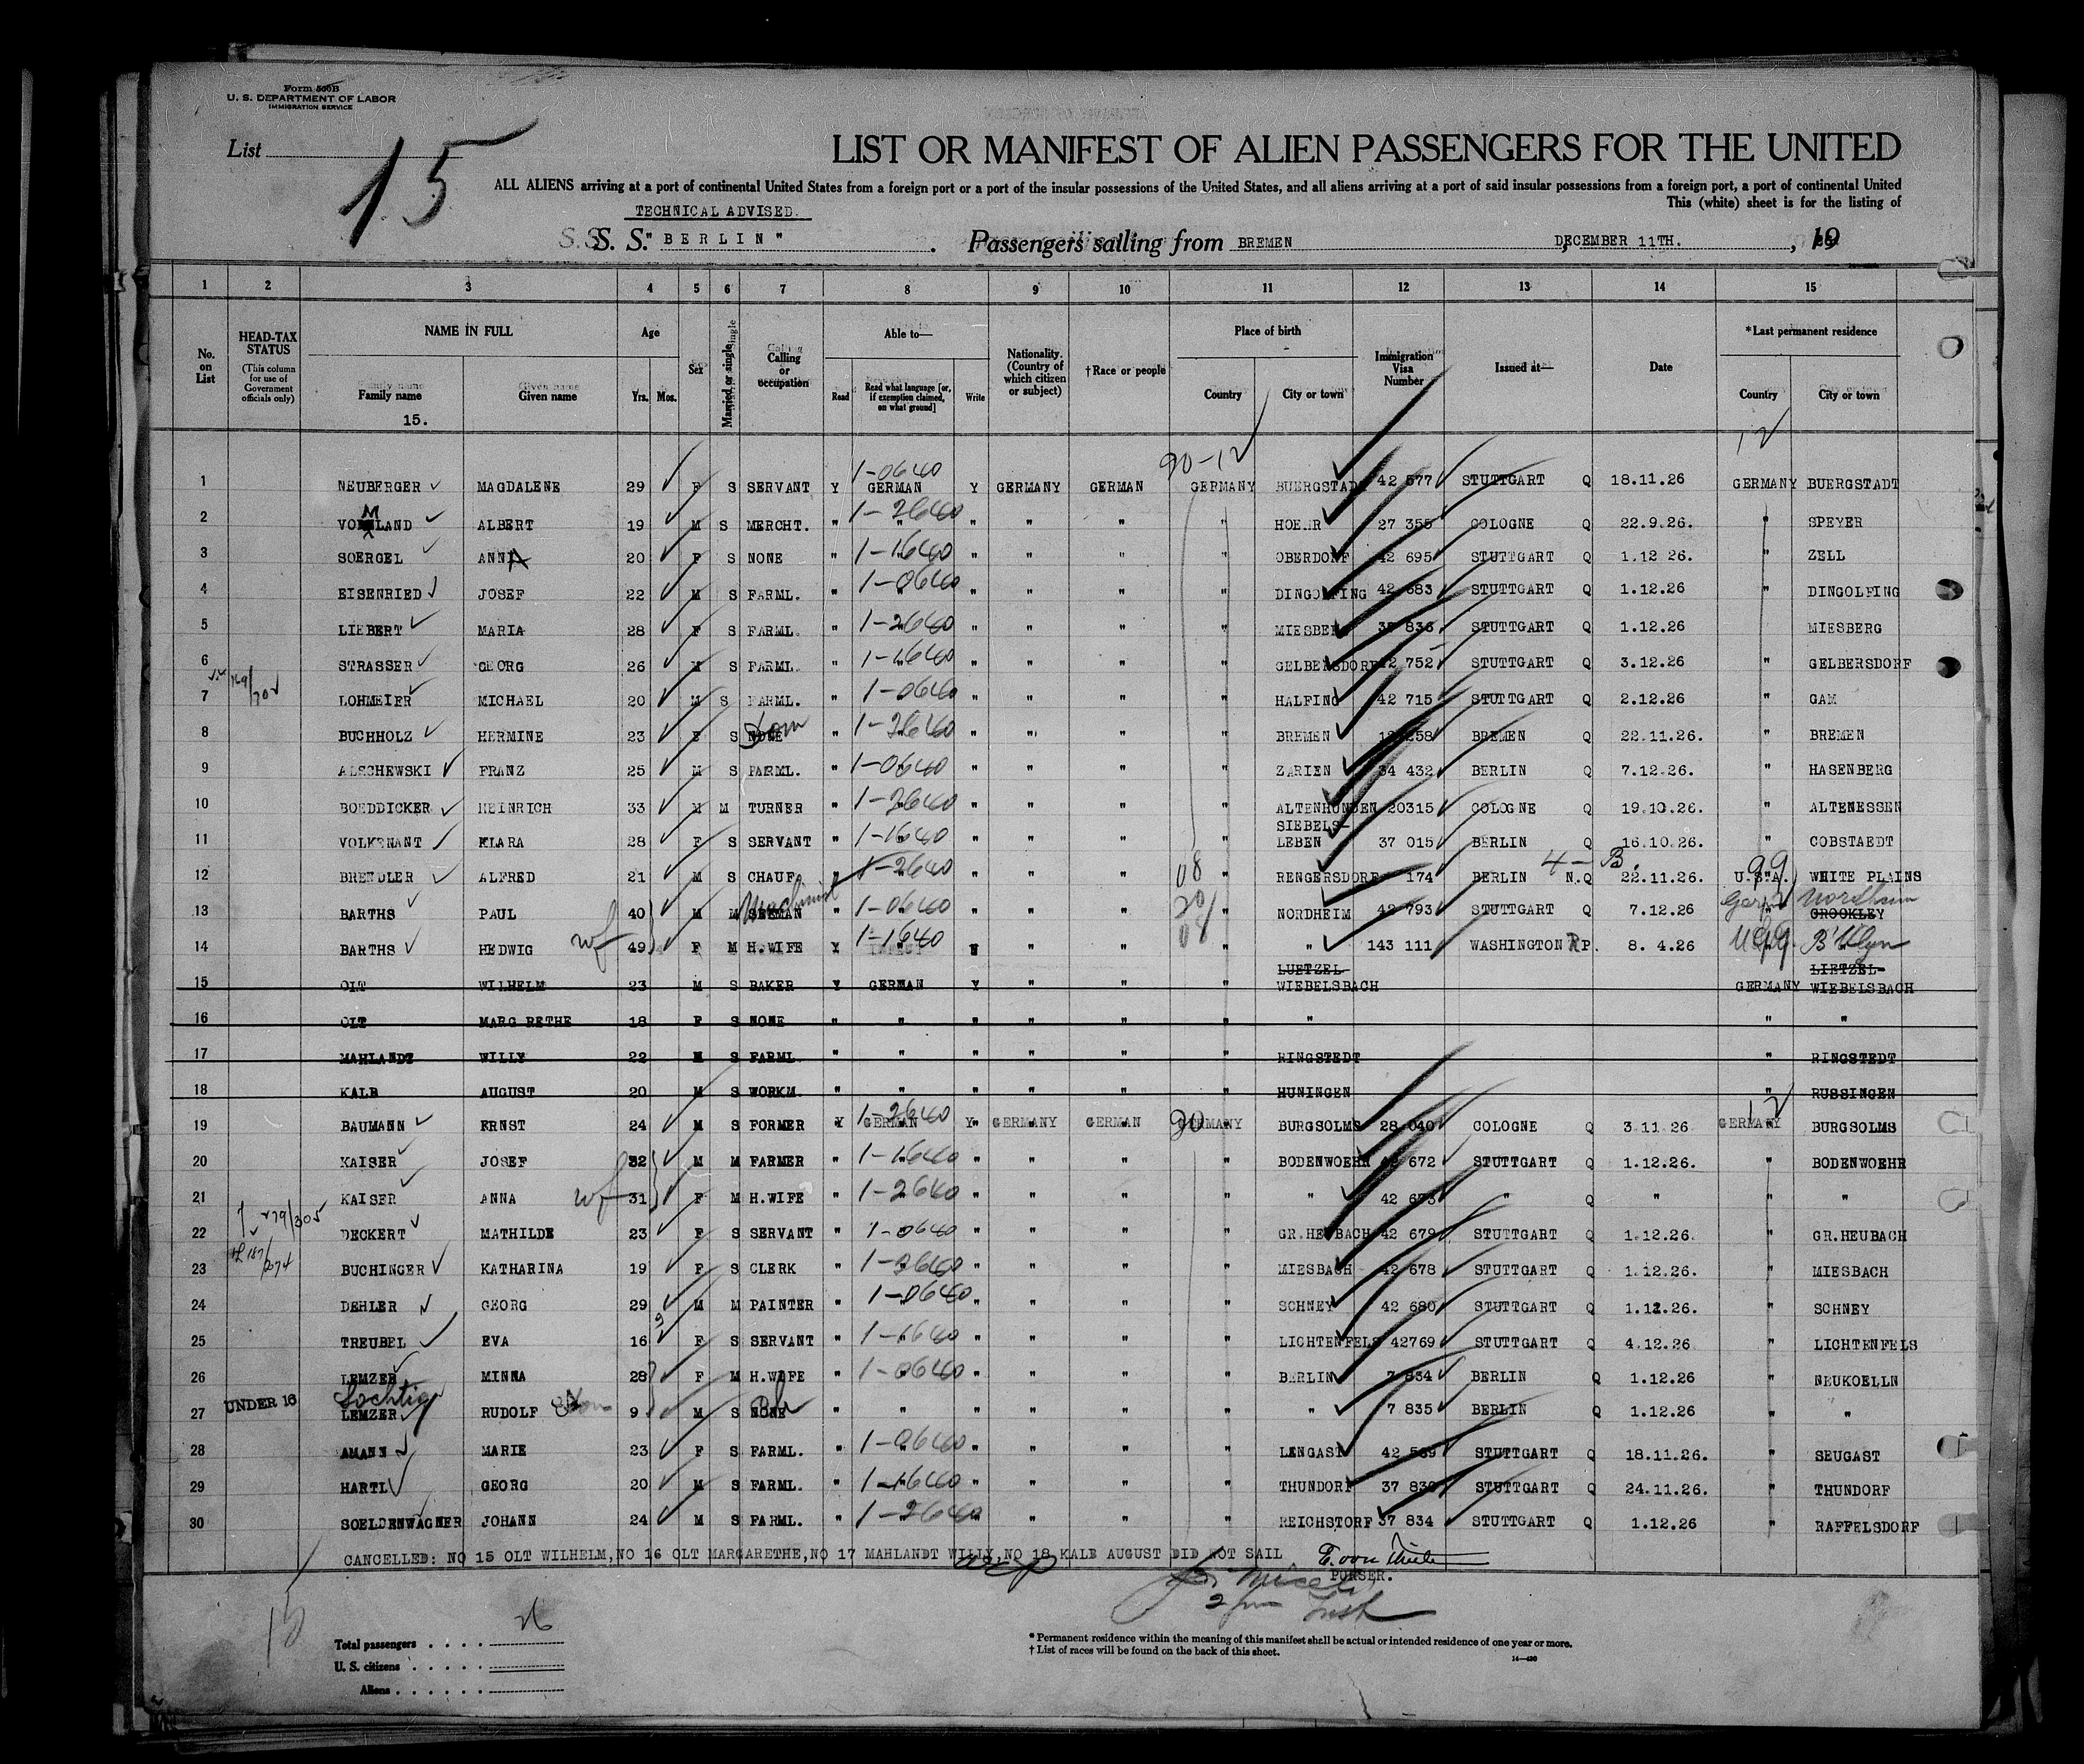 Form 500B
U. S. DEPARTMENT OF LABOR
IMMIGRATION SERVICE
List 15
LIST OR MANIFEST OF ALIEN PASSENGERS FOR THE UNITED
ALL ALIENS arriving at a port of continental United States from a foreign port or a port of the insular possessions of the United States, and all aliens arriving at a port of said insular possessions from a foreign port, a port of continental United
This (white) sheet is for the listing of
TECHNICAL ADVISED.
S. S. "BERLIN" Passengers sailing from BREMEN DECEMBER 11TH. , 19
1 2 3 4 5 6 7 8 9 10 11 12 13 14 15
No. on List HEAD-TAX STATUS (This column for use of Government officials only) NAME IN FULL Family name Given name Age Yrs. Mos. Sex Married or single Calling or occupation Able to— Read Read what language [or, if exemption claimed, on what ground] Write Nationality. (Country of which citizen or subject) †Race or people Place of birth Country City or town Immigration Visa Number Issued at— Date *Last permanent residence Country City or town
15.
90-12 12
1 NEUBERGER MAGDALENE 29 F S SERVANT Y 1-0640 GERMAN Y GERMANY GERMAN GERMANY BUERGSTADT 42 577 STUTTGART Q 18.11.26 GERMANY BUERGSTADT
2 VOMLAND ALBERT 19 M S MERCHT. " 1-2640 " " " " " HOEHR 27 355 COLOGNE Q 22.9.26. " SPEYER
3 SOERGEL ANNA 20 F S NONE " 1-1640 " " " " " OBERDORF 42 695 STUTTGART Q 1.12 26. " ZELL
4 EISENRIED JOSEF 22 M S FARML. " 1-0640 " " " " " DINGOLFING 42 683 STUTTGART Q 1.12.26 " DINGOLFING
5 LIEBERT MARIA 28 F S FARML. " 1-2640 " " " " " MIESBERG 37 836 STUTTGART Q 1.12.26 " MIESBERG
6 STRASSER GEORG 26 M S FARML. " 1-1640 " " " " " GELBERSDORF 42 752 STUTTGART Q 3.12.26 " GELBERSDORF
7 LOHMEIER MICHAEL 20 M S FARML. " 1-0640 " " " " " HALFING 42 715 STUTTGART Q 2.12.26 " GAM
8 BUCHHOLZ HERMINE 23 F S NONE Dom " 1-2640 " " " " " BREMEN BREMEN Q 22.11.26. " BREMEN
9 ALSCHEWSKI FRANZ 25 M S FARML. " 1-0640 " " " " " ZARIEN 34 432 BERLIN Q 7.12.26. " HASENBERG
10 BOEDDICKER HEINRICH 33 M M TURNER " 1-2640 " " " " " ALTENHUNDEN 20315 COLOGNE Q 19.10.26. " ALTENESSEN
11 VOLKENANT KLARA 28 F S SERVANT " 1-1640 " " " " " SIEBELS-LEBEN 37 015 BERLIN Q 16.10.26. " COBSTAEDT
12 BRENDLER ALFRED 21 M S CHAUF. " 1-2640 " " " 08 " RENGERSDORF 174 BERLIN 4-B. N.Q 22.11.26. U.S.A. 99 WHITE PLAINS
13 BARTHS PAUL 40 M M SEEMAN Machinist " 1-0640 " " " 20 " NORDHEIM 42 793 STUTTGART Q 7.12.26 " CROOKLEY Nordheim
14 BARTHS wf HEDWIG 49 F M H.WIFE Y 1-1640 " " 08 " " 143 111 WASHINGTON R P. 8. 4.26 B'klyn
15 OLT WILHELM 23 M S BAKER Y GERMAN Y " " " LUETZEL-WIEBELSBACH GERMANY LIETZEL-WIEBELSBACH
16 OLT MARG RETHE 18 F S NONE " " " " " " " " "
17 MAHLANDT WILLY 22 M S FARML " " " " " " RINGSTEDT " RINGSTEDT
18 KALB AUGUST 20 M S WORKM. " " " " " " HUNINGEN " RUSSINGEN
19 BAUMANN ERNST 24 M S FORMER Y 1-2640 GERMAN Y GERMANY GERMAN 20 GERMANY BURGSOLMS 28 040 COLOGNE Q 3 11 26 GERMANY 12 BURGSOLMS
20 KAISER JOSEF 32 M M FARMER " 1-1640 " " " " BODENWOEHR 42 672 STUTTGART Q 1.12.26. " BODENWOEHR
21 KAISER ANNA wf 31 F M H.WIFE " 1-2640 " " " " " 42 673 " Q " " "
22 DECKERT MATHILDE 23 F S SERVANT " 1-0640 " " " " GR.HEUBACH 42 679 STUTTGART Q 1.12.26. " GR.HEUBACH
23 BUCHINGER KATHARINA 19 F S CLERK " 1-2640 " " " " MIESBACH 42 678 STUTTGART Q 1.12.26. " MIESBACH
24 DEHLER GEORG 29 M M PAINTER " 1-0640 " " " " SCHNEY 42 680 STUTTGART Q 1.12.26. " SCHNEY
25 TREUBEL EVA 16 9 F S SERVANT " 1-1640 " " " " LICHTENFELS 42769 STUTTGART Q 4.12.26 " LICHTENFELS
26 LEMZER MINNA 28 F M H.WIFE " 1-0640 " " " " BERLIN 7 834 BERLIN Q 1.12.26 " NEUKOELLN
27 UNDER 16 LEMZER RUDOLF son 9 M S NONE Ch " " " " " " " 7 835 BERLIN Q 1.12.26 " "
28 AMANN MARIE 23 F S FARML. " 1-0640 " " " " LENGAST 42 589 STUTTGART Q 18.11.26. " SEUGAST
29 HARTL GEORG 20 M S FARML. " 1-1640 " " " " THUNDORF 37 830 STUTTGART Q 24.11.26. " THUNDORF
30 SOELDENWAGNER JOHANN 24 M S FARML. " 1-2640 " " " " REICHSTORF 37 834 STUTTGART Q 1.12.26 " RAFFELSDORF
CANCELLED: NO 15 OLT WILHELM, NO 16 OLT MARGARETHE, NO 17 MAHLANDT WILLY, NO 18 KALB AUGUST DID NOT SAIL
PURSER.
15
26
Total passengers . . . .
U. S. citizens . . . . .
Aliens . . . . . .
* Permanent residence within the meaning of this manifest shall be actual or intended residence of one year or more.
† List of races will be found on the back of this sheet.
14—430